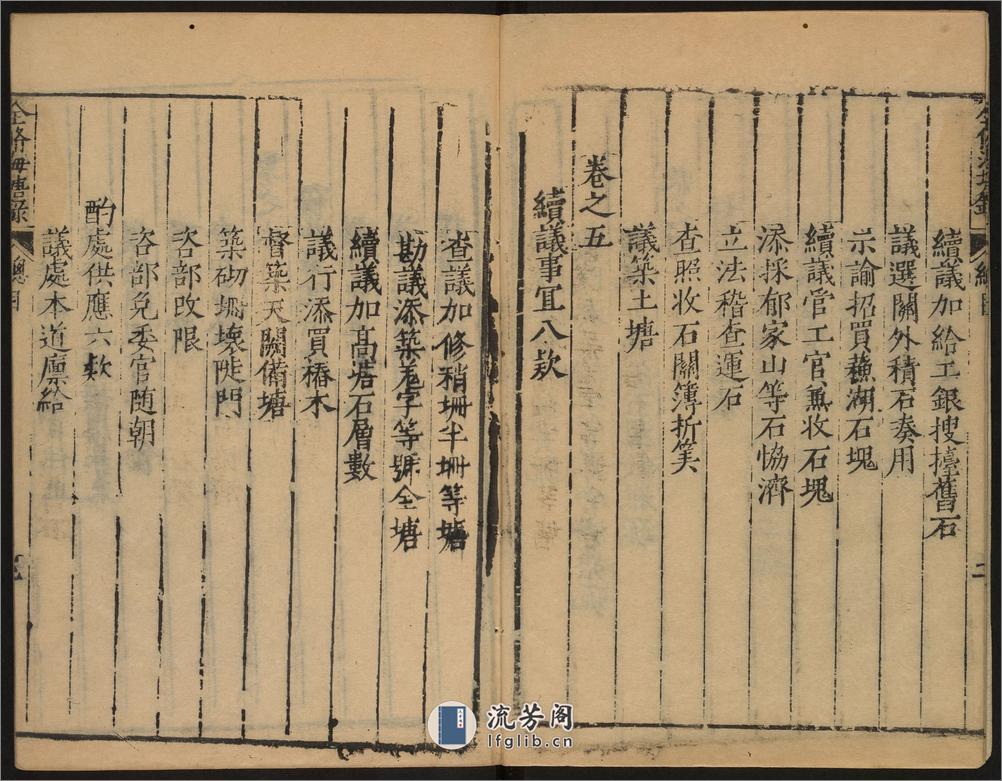 續議加給工銀搜擡舊石
議選關外積石奏用
示諭招買蘇湖石塊
續議管工官兼收石塊
添採郁家山等石恊濟
立法稽查運石
查照收石關簿折筭
議築土塘
卷之五
續議事冝八欵
查議加修稍坍半坍等塘
勘議添築 字等號全塘
續議加髙塔石層數
議行添買樁木
督築天關備塘
築砌坍壊陡門
咨部改限
咨部免委官随朝
酌處供應六欵
議處本道廪給
全修海塘録
總目
流芳阁
lfglib.cn